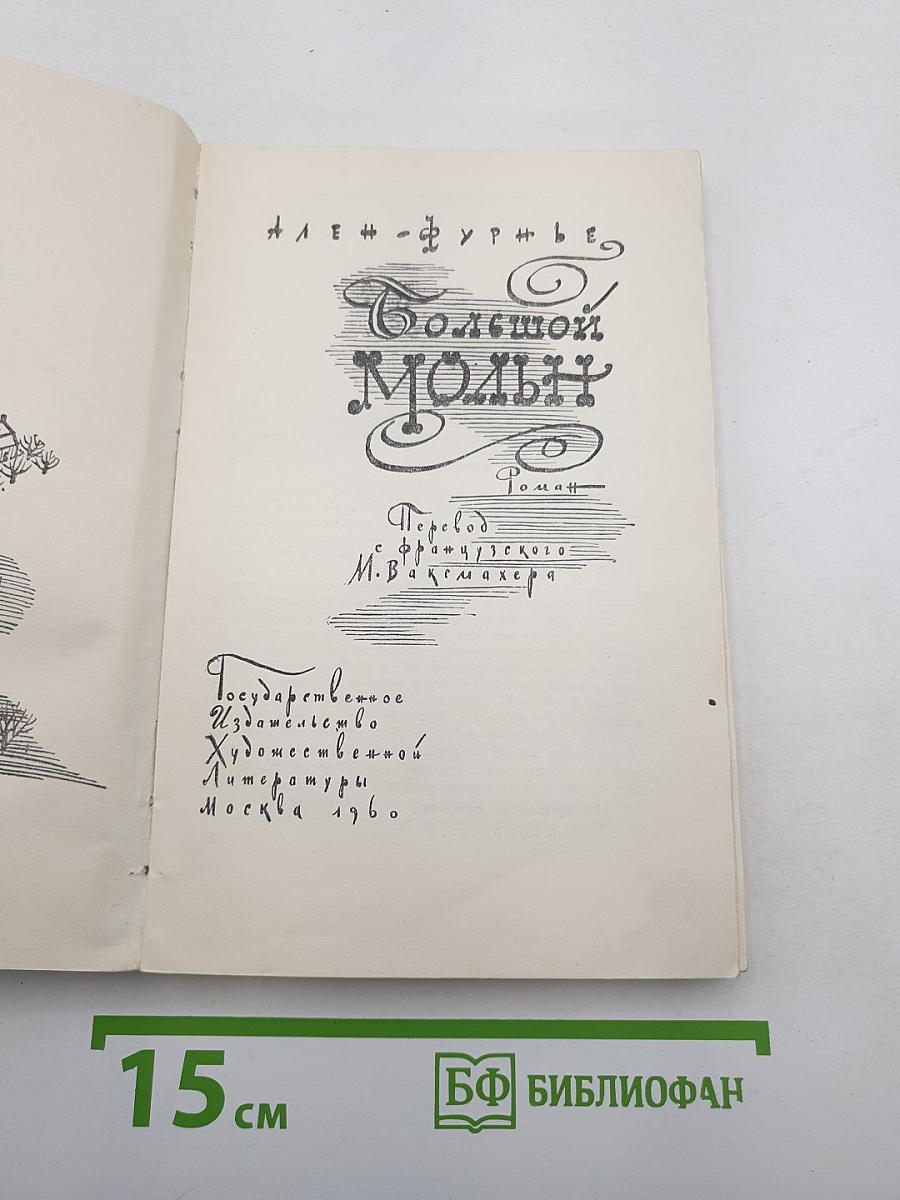 Ален-Фурнье
Большой
Мольн
Роман
Перевод
с французского
М. Ваксмахера
Государственное
Издательство
Художественной
Литературы
Москва 1960
15 см
БФ БИБЛИОФАН